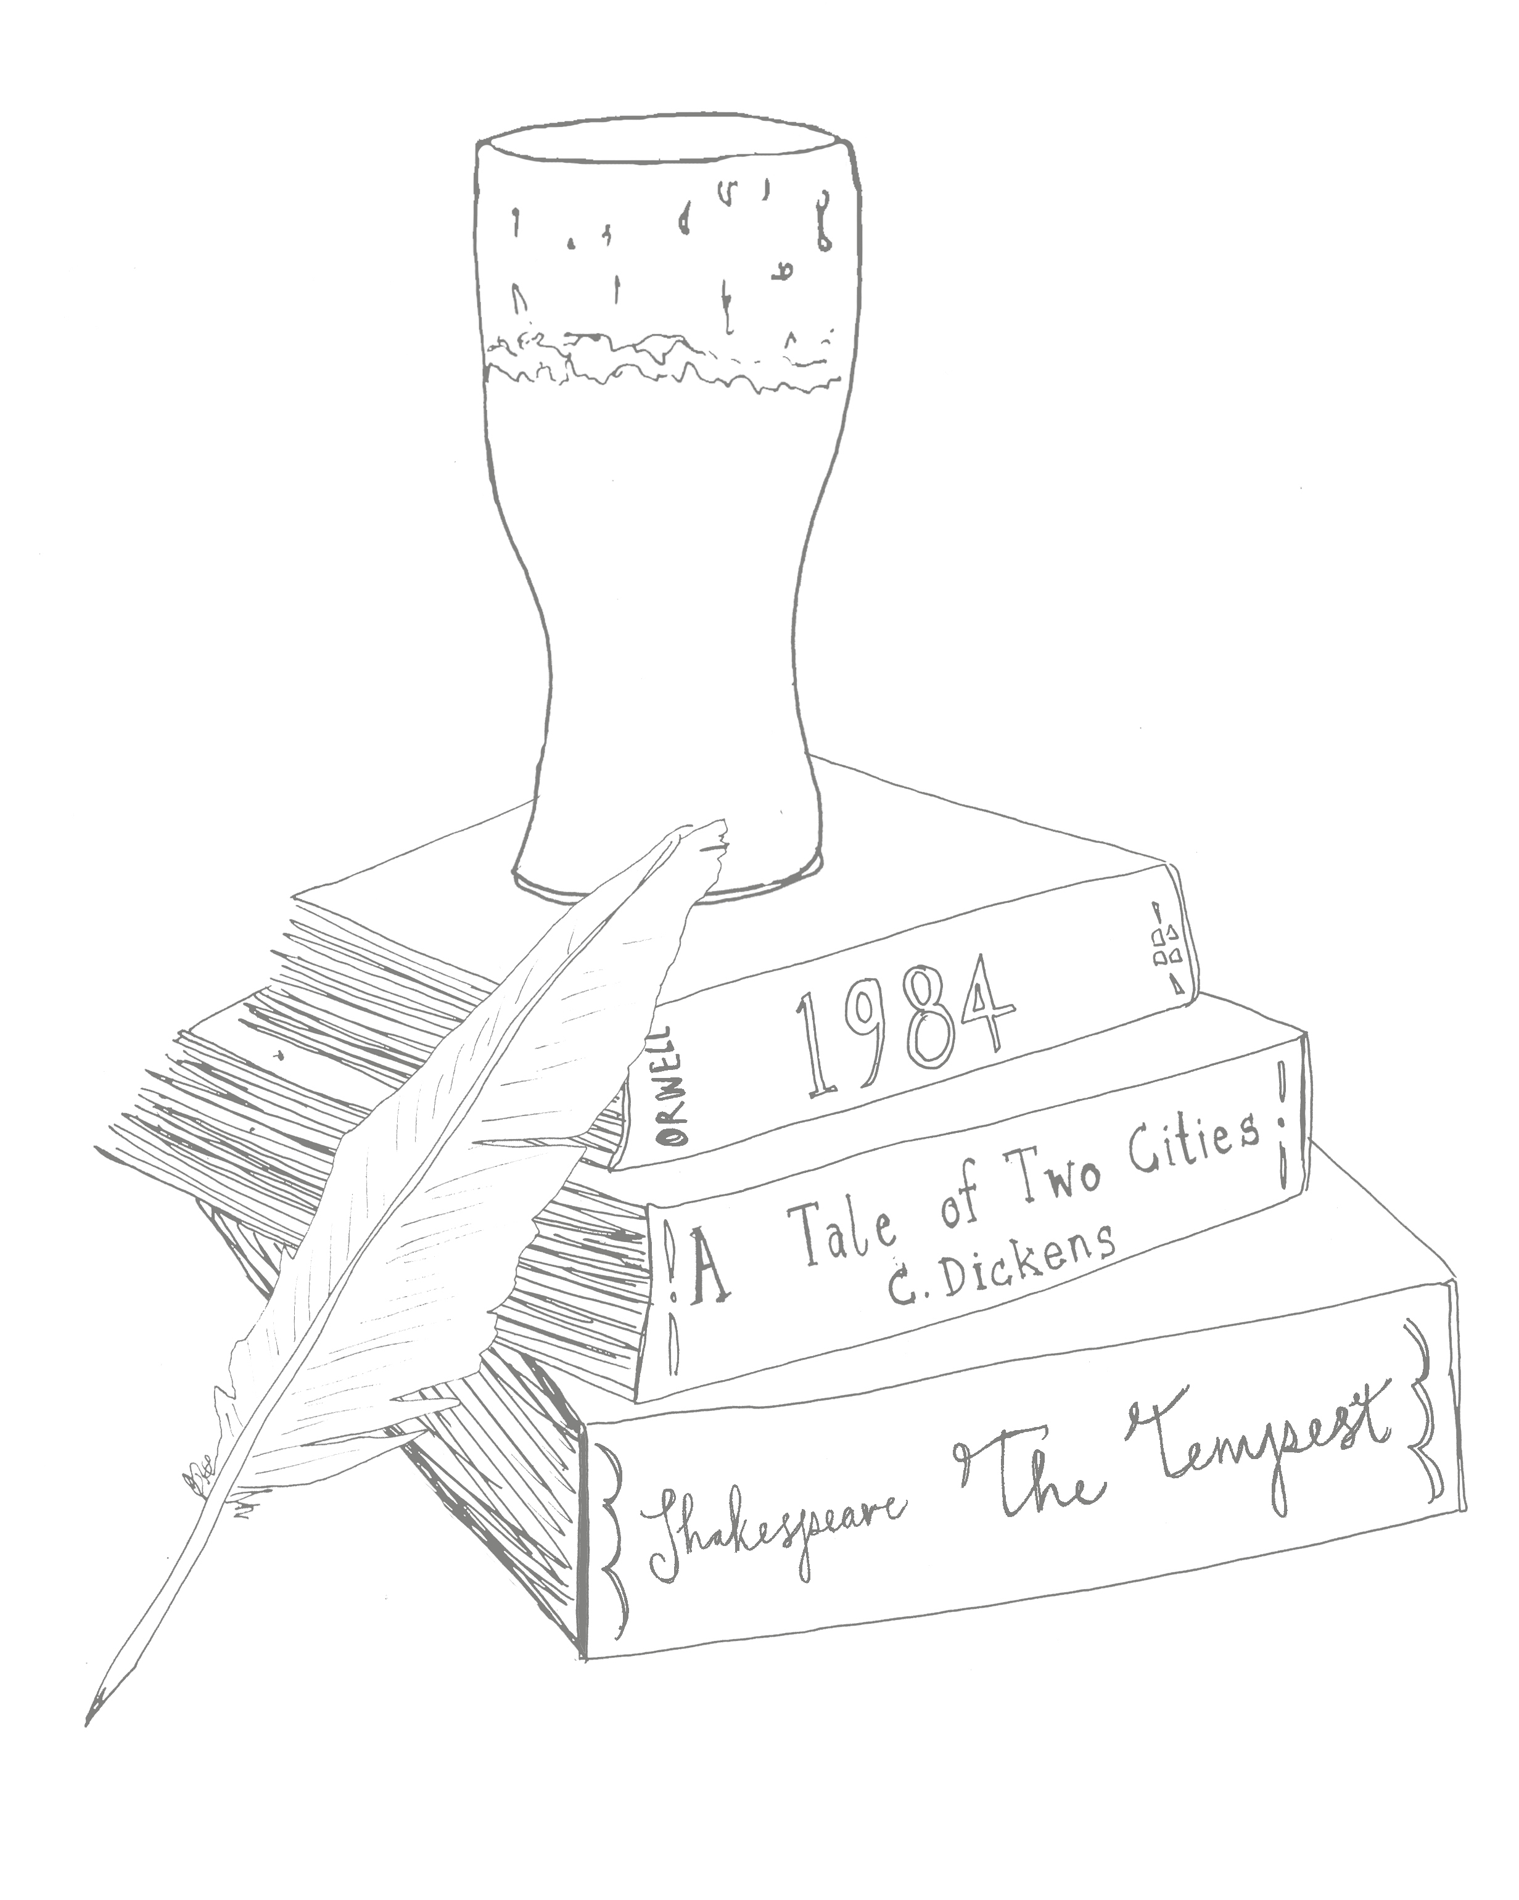 ORWELL
1984
A Tale of Two Cities
C. Dickens
Shakespeare The Tempest